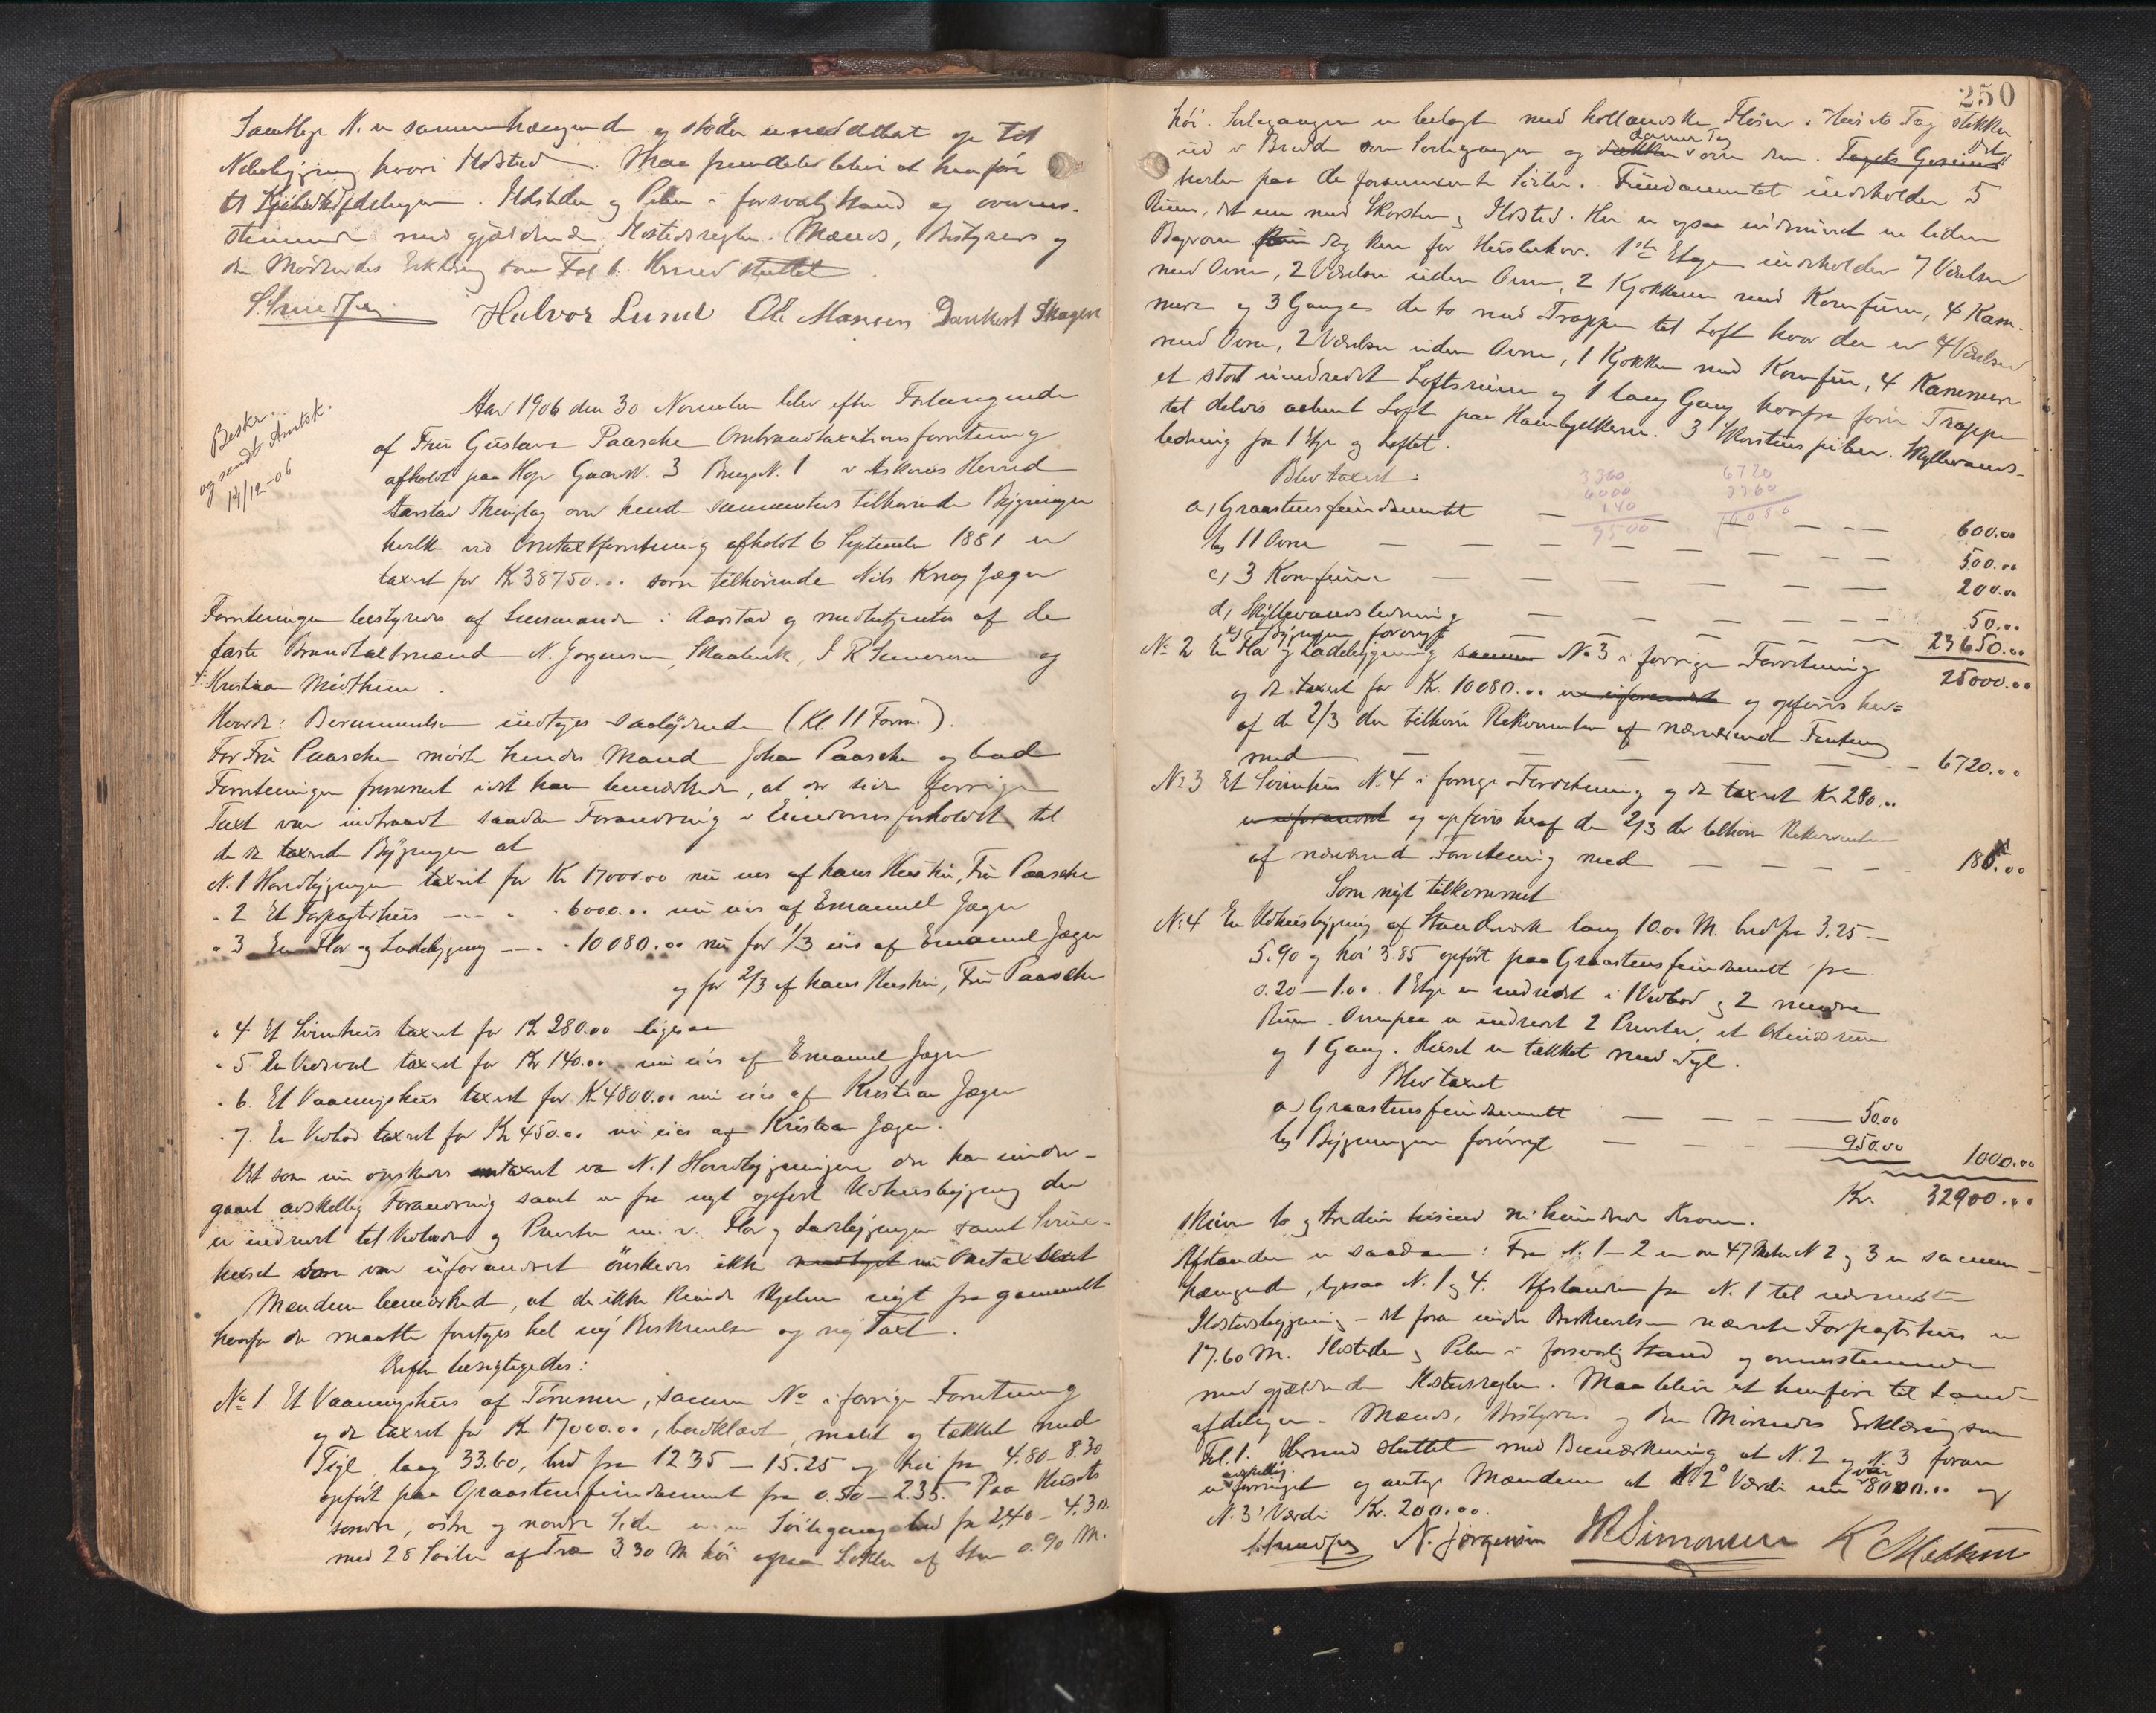 Samtlige N. er sammenhængende og støder umiddelbart op til
Nabobygning hvori Ildsted. Maa fremdeles blive at henføre
til Kjøbstadafdelingen. Ildsteder og Piber i forsvarlig Stand og overens-
stemmende med gjældende Ildstedsregler. Mænds, Bestyrers og
den Mødendes Erklæring som Fol 1. Hermed sluttet.
Halvor Lund Ole Monsen Dankert Skagen
Beskr.
og sendt Amtsk.
14/12-06
Aar 1906 den 30 November blev efter Forlangende
af Fru Gustava Paasche Ombrandtaxationsforretning
afholdt paa Hop Gaards N. 3 Brugs N. 1 i Askøens Herred
Aarstad Thinglag over hende sammesteds tilhørende Bygninger
hvilke ved Omtaxtforretning afholdt 6 September 1881 er
taxeret for Kr 38750.00 som tilhørende Nils Knag Jæger
Forretningen bestyredes af Lensmanden i Aarstad og medbetjentes af de
faste Brandtaxtmænd N. Jørgensen, Skaalevik, I R Simonsen og
Kristian Midthun.
Hvorda: Berammelsen indtoges saalydende (Kl. 11 Form.).
For Fru Paasche mødte hendes Mand Johan Paasche og bad
Forretningen fremmet idet han bemærkede, at der siden forrige
Taxt var indtraadt saadan Forandring i Eiendomsforholdet til
de da taxerede Bygninger at
N. 1 Hovedbygningen taxeret for Kr 17000.00 nu eies af hans Hustru, Fru Paasche
" 2 Et Forpagterhus — " 6000.00 nu eies af Emanuel Jæger
" 3 En Flor og Ladebygning — " 10080.00 nu for 1/3 eies af Emanuel Jæger
og for 2/3 af hans Hustru, Fru Paasche
" 4 Et Svinehus taxeret for Kr 280.00 ligesaa
" 5 En Vedsval taxeret for Kr 140.00 nu eies af Emanuel Jæger
" 6. Et Vaaningshus taxeret for Kr 4800.00 nu eies af Kristian Jæger
" 7. En Vedbod taxeret for Kr 450.00 nu eies af Kristian Jæger.
Det som nu ønskedes omtaxeret var N. 1 Hovedbygningen der har under-
gaaet adskillig Forandring samt en fra nyt opført Udhusbygning der
er indredet til Vedboder og Priveter m. v. Flor og Ladebygningen samt Svine-
huset som var uforandret ønskedes ikke medtaget nu omtaxeret
Mændene bemærkede, at de ikke kunde skjelne nyt fra gammelt
hvorfor der maatte foretages hel ny Beskrivelse og ny Taxt.
Derefter besigtigedes:
No 1. Et Vaaningshus af Tømmer, samme No i forrige Forretning
og da taxeret for Kr 17000.00, bordklædt, malet og tækket med
Tegl, lang 33.60, bred fra 12.35 — 15.25 og høi fra 4.80 - 8.30
opført paa Graastensfundament fra 0.50 — 2.35. Paa Husets
søndre, østre og nordre Side er en Søilegang bred fra 2.40 — 4.30.
med 28 Søiler af Træ 3.30 M høi ogsaa Sokler af Sten 0.90 M.
250
høi. Søilegangen er belagt med hollandske Fliser. Husets Tag stikker
ud i Bredde som Søilegangen og dækker denne Tag over den. Tagets Gesims
hviler paa de forannævnte Søiler. Fundamentet indeholder 5
Rum, det ene med Skorsten og Ildsted. Her er ogsaa indmuret en liden
Bagerovn og Rum for Husbehov. 1ste Etage indeholder 7 Værelser
med Ovne, 2 Værelser uden Ovne, 2 Kjøkkener med Komfurer, 4 Kam-
mere og 3 Gange de to med Trapper til Loft hvor der er 4 Værelser
med Ovne, 2 Værelser uden Ovne, 1 Kjøkken med Komfur, 4 Kammere
et stort uindredet Loftsrum og 1 lang Gang hvorfra fører Trappe
til delvis aabent Loft paa Hanebjelkerne. 3 Skorstenspiber. Skyllevands-
ledning fra 1 Etge og Loftet.
Blev taxeret:
3360 6720
6000 3360
140
9500 10080
a, Graastensfundamentet — 600.00
b, 11 Ovne — 500.00
c, 3 Komfurer — 200.00
d, Skyllevandsledning — 50.00
e, Bygningen forøvrigt — 23650.00
25000.00
No 2 En Flor og Ladebygning samme No 3 i forrige Forretning
og da taxeret for Kr. 10080.00 er uforandret og opføres her-
af de 2/3 der tilhører Rekvirenten af nærværende Forretning
med — 6720.00
No 3 Et Svinehus N. 4 i forrige Forretning og da taxeret Kr 280.00
er uforandret og opføres heraf de 2/3 der tilhører Rekvirenten
af nærværende Forretning med — 180.00
Som nyt tilkommet
No 4 En Udhusbygning af Standværk lang 10.00 M. bred fra 3.25 —
5.90 og høi 3.85 opført paa Graastensfundament fra
0.20 — 1.00. 1 Etge er indredet i 1 Vedbod og 2 mindre
Rum. Ovenpaa er indredet 2 Priveter, et
og 1 Gang. Huset er tækket med Tegl.
Blev taxeret
a) Graastensfundamentet — 50.00
b, Bygningen forøvrigt — 950.00 1000.00
Kr. 32900.00
skriver to og tredive tusind ni hundrede Kroner.
Afstanden er saadan: Fra N. 1 — 2 er om 47 Meter N 2 og 3 er sammen-
hængende, ligesaa N. 1 og 4. Afstanden fra N. 1 til nærmeste
Ildstedsbygning - det foran under Beskrivelsen nævnte Forpagterhus er
17.60 M. Ildsteder og Piber i forsvarlig Stand og overensstemmende
med gjældende Ildstedsregler. Maa blive at henføre til Land-
afdelingen. Mænds, Bestyrers og den Mødendes Erklæring som
Fol. 1. Hermed sluttet med Bemærkning at N. 2 og N. 3 foran
er adskillig forringet og antager Mændene at N. 2s Værdi nu var 8000.00 og
N. 3s Værdi Kr. 200.00.
N. Jørgensen IRSimonsen K Midthun